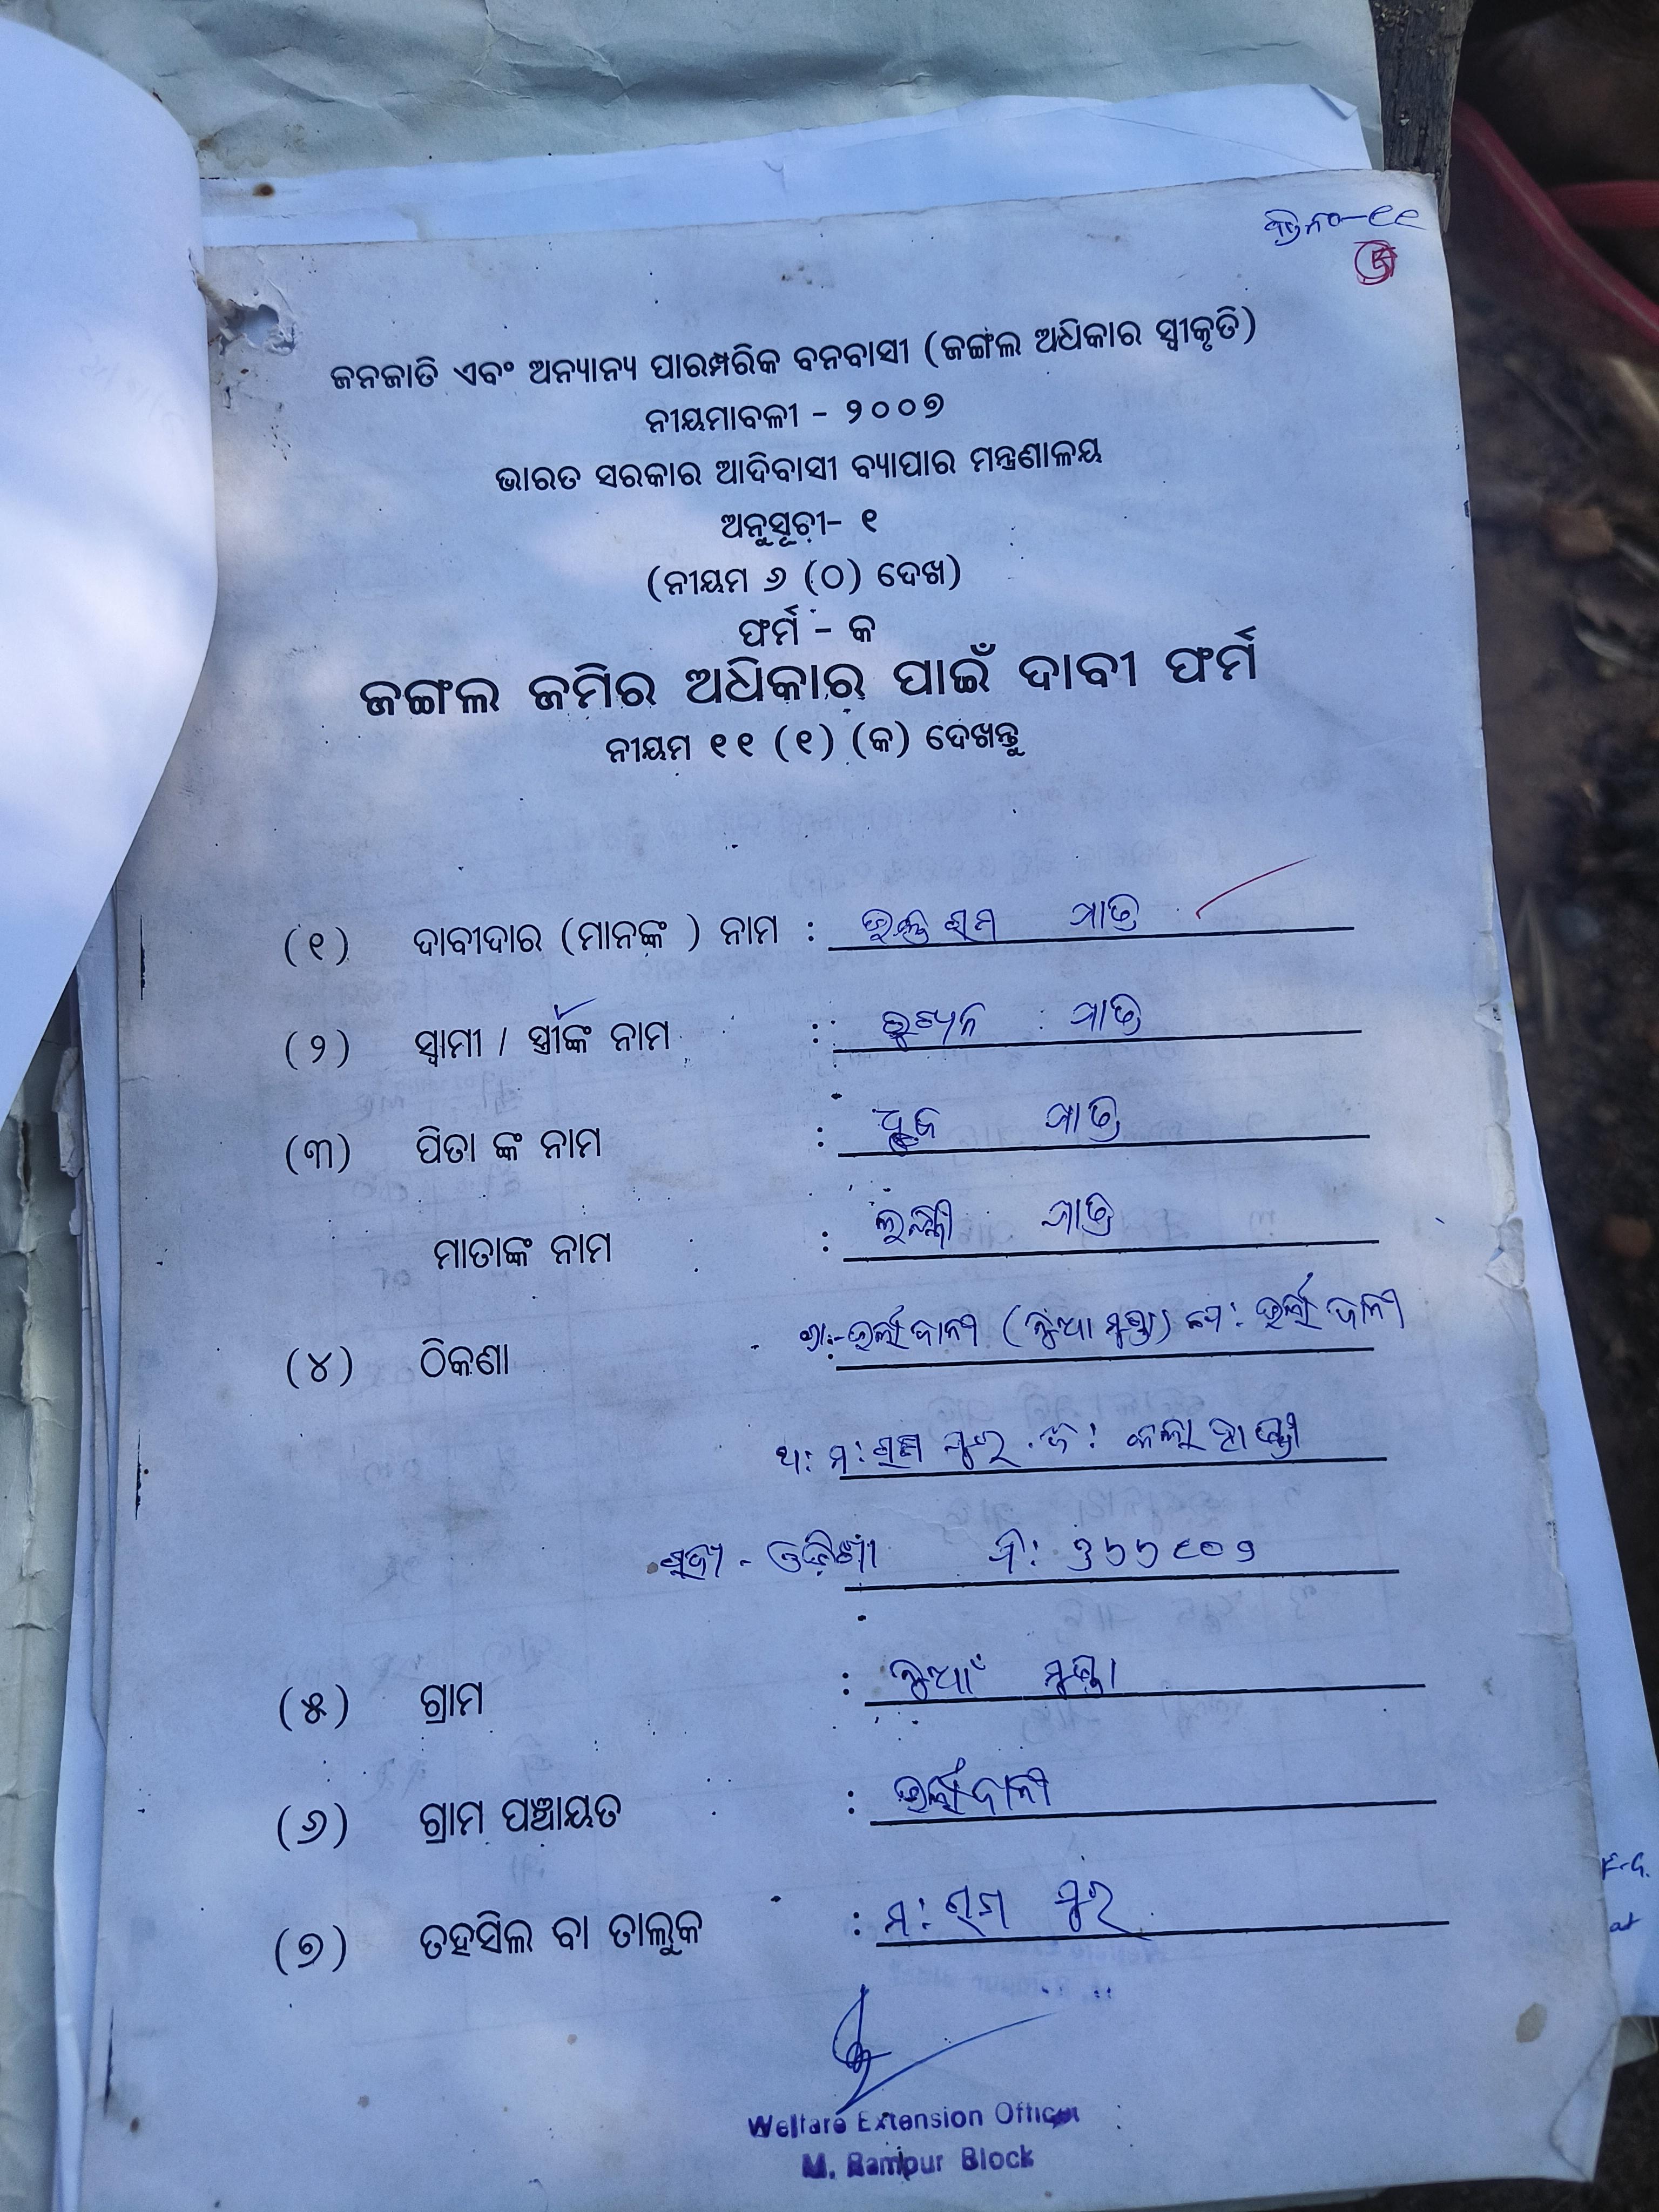 ଜନଜାତି ଏବଂ ଅନ୍ୟାନ୍ୟ ପାରମ୍ପରିକ ବନବାସୀ (ଜଙ୍ଗଲ ଅଧିକାର ସ୍ୱୀକୃତି)
ନୀୟମାବଳୀ - ୨୦୦୭
ଭାରତ ସରକାର ଆଦିବାସୀ ବ୍ୟାପାର ମନ୍ତ୍ରଣାଳୟ
ଅନୁସୂଚୀ- ୧
(ନୀୟମ ୬ (୦) ଦେଖ)
ଫର୍ମ - କ
ଜଙ୍ଗଲ ଜମିର ଅଧିକାର ପାଇଁ ଦାବୀ ଫର୍ମ
ନୀୟମ ୧୧ (୧) (କ) ଦେଖନ୍ତୁ
(୧) ଦାବୀଦାର (ମାନଙ୍କ ) ନାମ : ମାଝି
(୨) ସ୍ୱାମୀ / ସ୍ତ୍ରୀଙ୍କ ନାମ : ମାଝି
(୩) ପିତା ଙ୍କ ନାମ : ମାଝି
ମାତାଙ୍କ ନାମ : ମାଝି
(୪) ଠିକଣା (ନୁଆ ମୁଣ୍ଡା)
ଥା: ମ: ରାମ ପୁର ଜି: କଳାହାଣ୍ଡି
ରାଜ୍ୟ - ଓଡ଼ିଶା ପି: ୭୬୬୧୦୨
(୫) ଗ୍ରାମ : ନୁଆଁ ମୁଣ୍ଡା
(୬) ଗ୍ରାମ ପଞ୍ଚାୟତ :
(୭) ତହସିଲ ବା ତାଲୁକ : ମ: ରାମ ପୁର
Welfare Extension Officer
M. Rampur Block